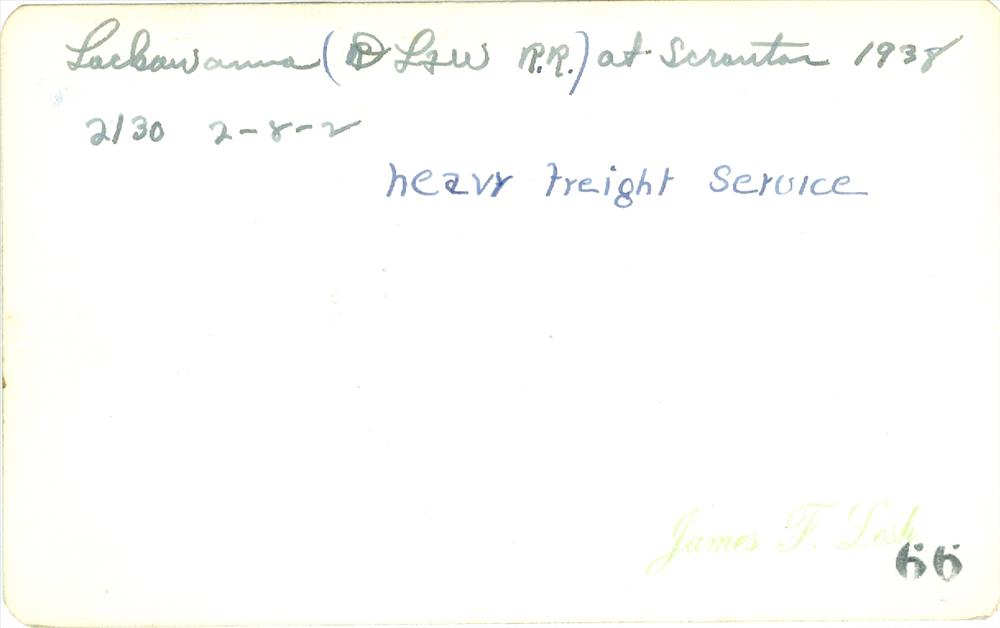 Lackawanna (D L&W R.R.) at Scranton 1938
2130 2-8-2
heavy freight service
James F. Lesh
66